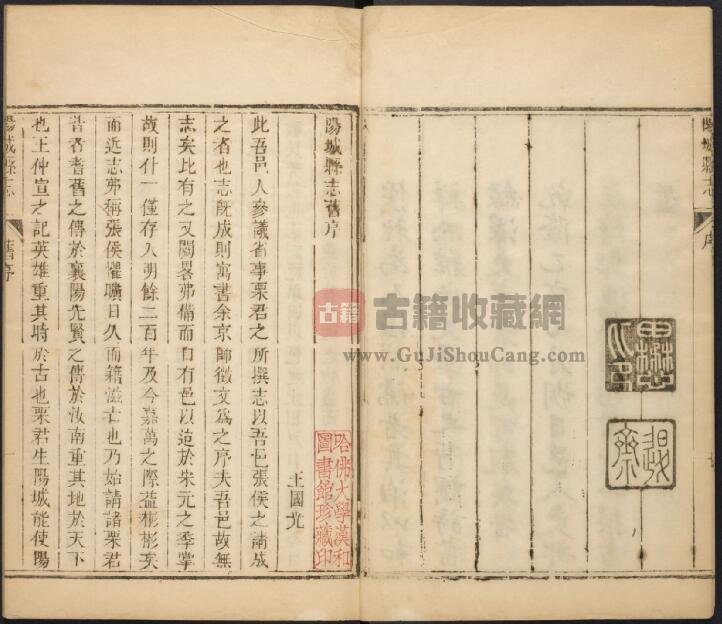 陽城縣志
序
陽城縣志舊序
王國光
此吾邑人參議省事栗君之所撰志以吾邑張侯之請成
之者也志旣成則寓書余京師徵文爲之序夫吾邑故無
志矣比有之又闕畧弗備而自有邑以迨於宋元之季掌
故則什一僅存入明餘二百年及今嘉萬之際益彬彬矣
而近志弗稱張侯懼曠日久而籍滋亡也乃始請諸栗君
昔者耆舊之傳於襄陽先賢之傳於汝南重其地於天下
也王仲宣之記英雄重其時於古也栗君生陽城能使陽
陽城縣志
舊序
哈佛大學漢和
圖書館珍藏印
古籍
古籍收藏網
www.GuJiShouCang.com